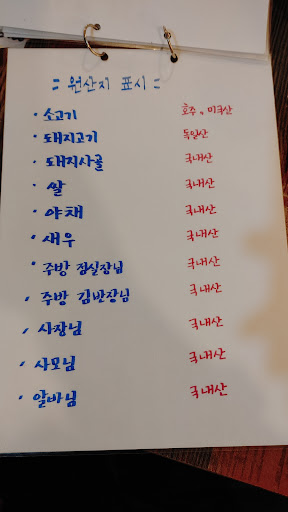 = 원산지 표시 =
· 소고기 호주, 미국산
· 돼지고기 독일산
· 돼지사골 국내산
· 쌀 국내산
· 야채 국내산
· 새우 국내산
· 주방 점실장님 국내산
· 주방 김반장님 국내산
· 사장님 국내산
· 사모님 국내산
· 알바님 국내산